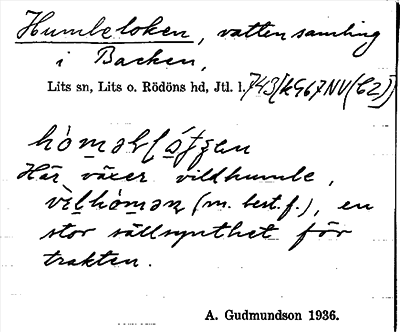 Humbeloken, vattensamling
i Backen,
Lits sn, Lits o. Rödöns hd, Jtl. l.
Här växer vildhumle,
(m. best. f.), en
stor sällsynthet för
trakten.
A. Gudmundson 1936.